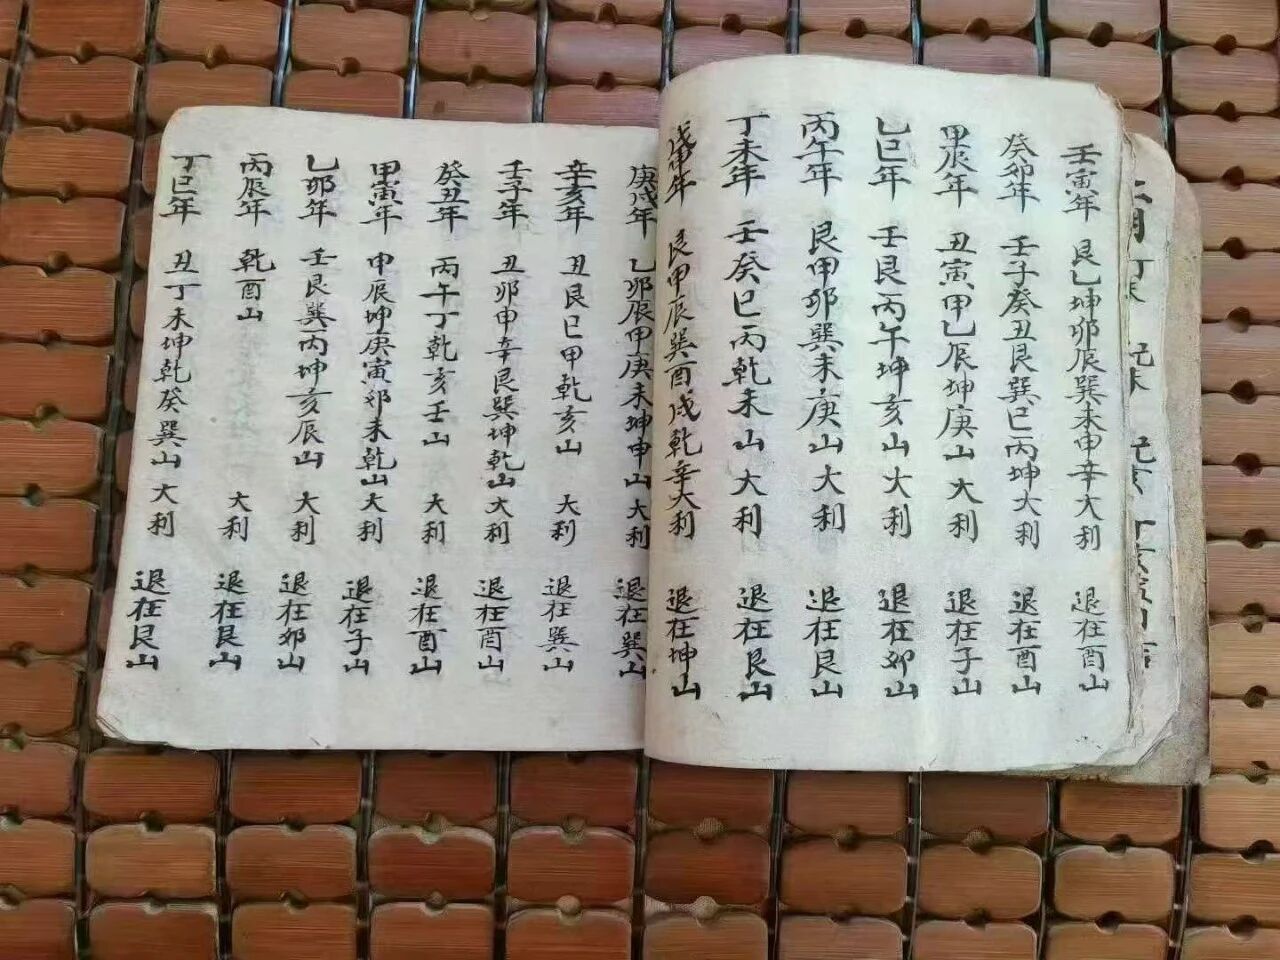 壬寅年 艮乙坤卯辰巽未申辛大利 退在酉山
癸卯年 壬子癸丑艮巽巳丙坤大利 退在酉山
甲辰年 丑寅甲乙辰坤庚山大利 退在子山
乙巳年 壬艮丙午坤亥山大利 退在卯山
丙午年 艮甲卯巽未庚山大利 退在艮山
丁未年 壬癸巳丙乾未山大利 退在艮山
戊申年 艮甲辰巽酉戌乾辛大利 退在坤山
庚戌年 乙卯辰甲庚未坤申山大利 退在巽山
辛亥年 丑艮巳甲乾亥山 大利 退在巽山
壬子年 丑卯申辛艮巽坤乾山大利 退在酉山
癸丑年 丙午丁乾亥壬山 大利 退在酉山
甲寅年 申辰坤庚寅卯未乾山大利 退在子山
乙卯年 壬艮巽丙坤亥辰山 大利 退在卯山
丙辰年 乾酉山 大利 退在艮山
丁巳年 丑丁未坤乾癸巽山大利 退在艮山